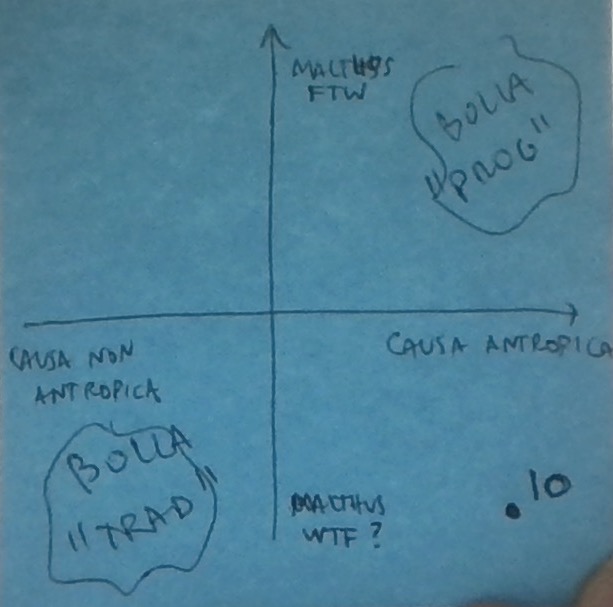 MALTHUS
FTW
BOLLA
"PROG"
CAUSA NON
ANTROPICA
CAUSA ANTROPICA
BOLLA
"TRAD"
MALTHUS
WTF?
.IO